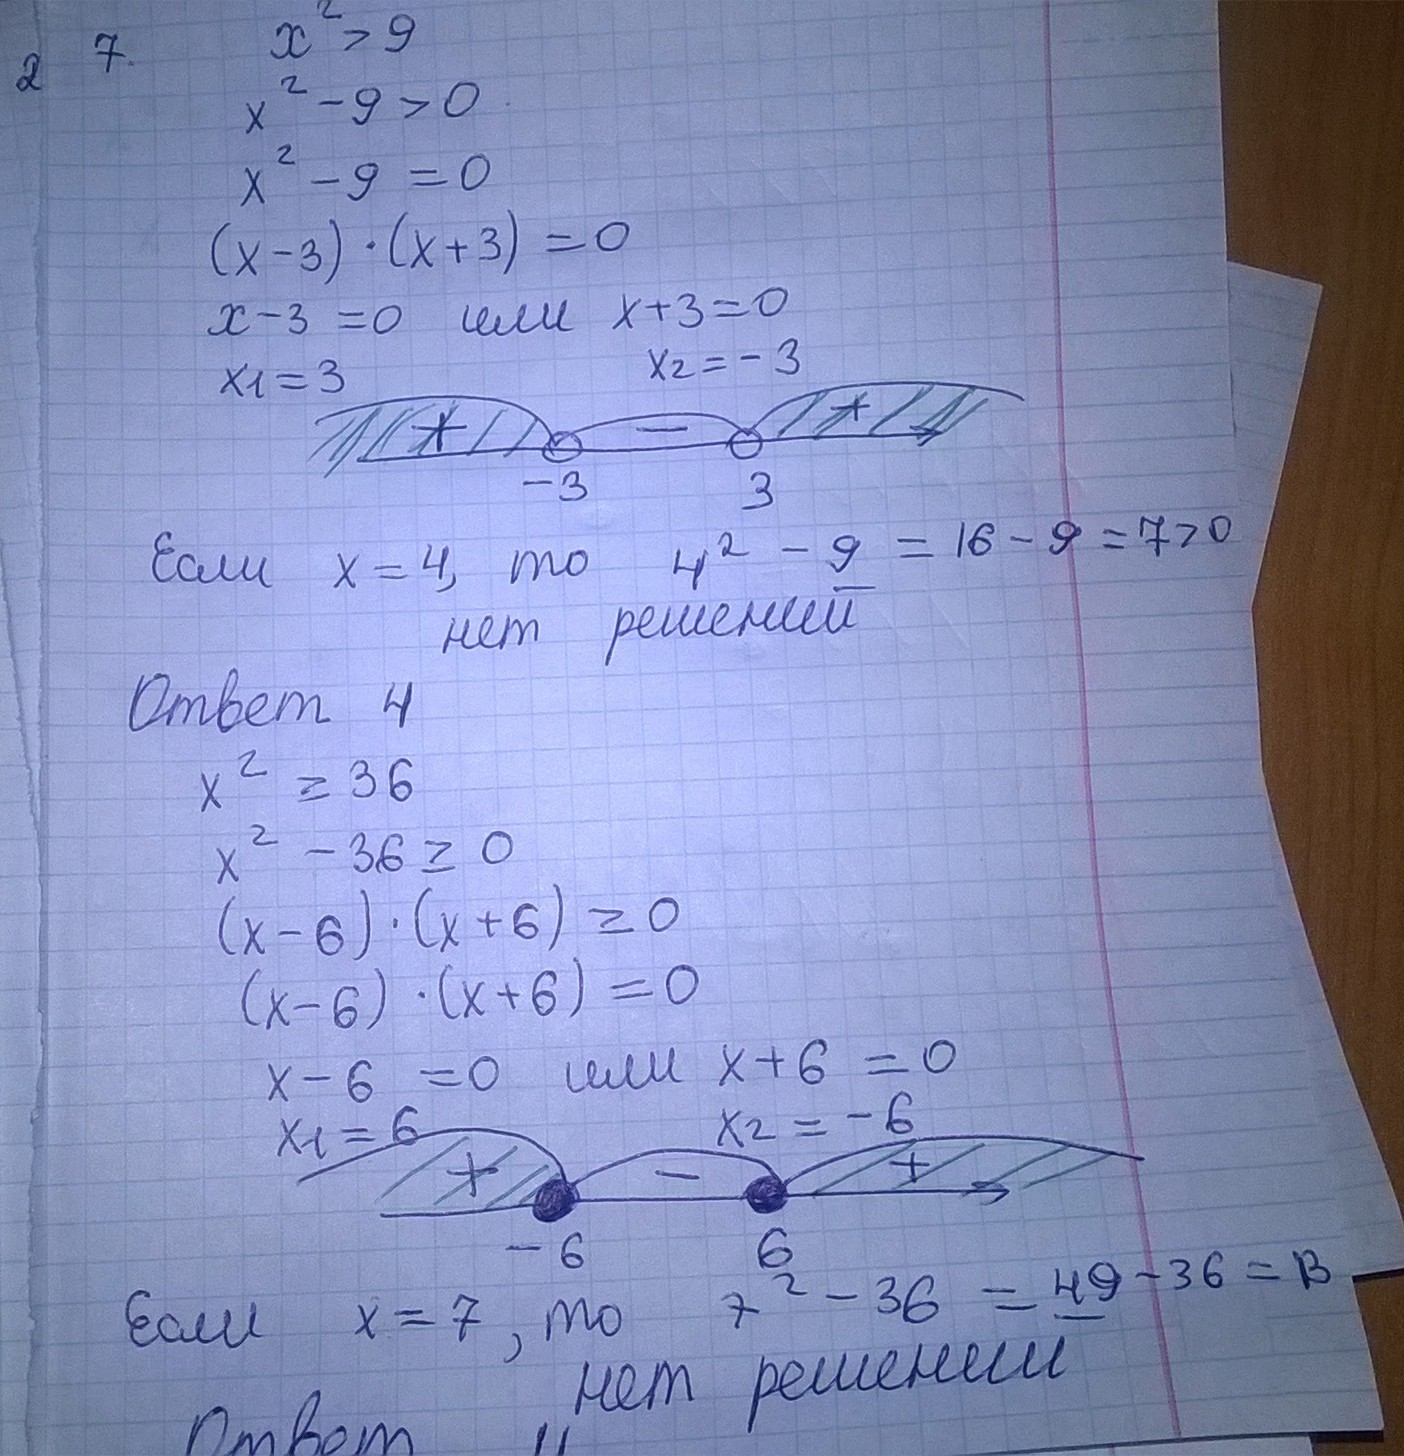 2 7. x² > 9
x² - 9 > 0
x² - 9 = 0
(x-3) · (x+3) = 0
x-3 = 0 или x+3=0
x1 = 3 x2 = -3
+ - +
-3 3
Если x = 4, то 4² - 9 = 16 - 9 = 7>0
нет решений
Ответ 4
x² ≥ 36
x² - 36 ≥ 0
(x-6) · (x+6) ≥ 0
(x-6) · (x+6) = 0
x-6 = 0 или x+6 = 0
x1 = 6 x2 = -6
+ - +
-6 6
Если x = 7, то 7² - 36 = 49 - 36 = 13
нет решений
Ответ